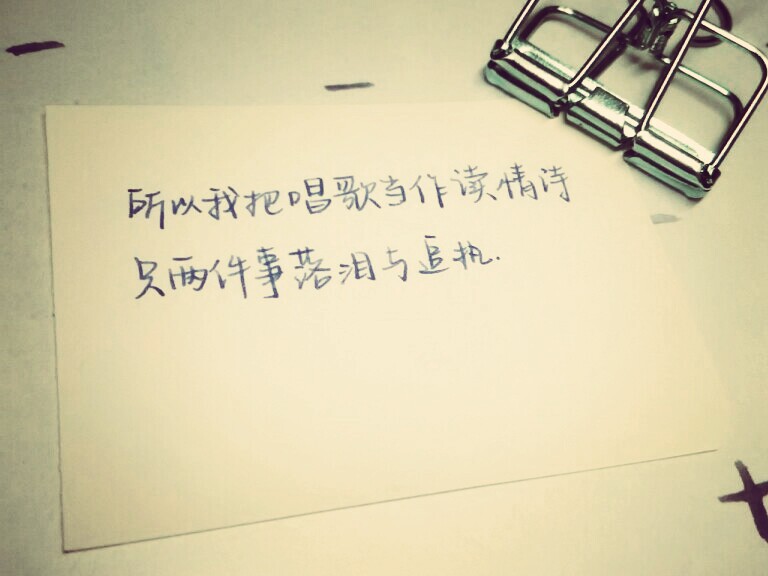 所以我把唱歌当作读情诗
只两件事落泪与追执.